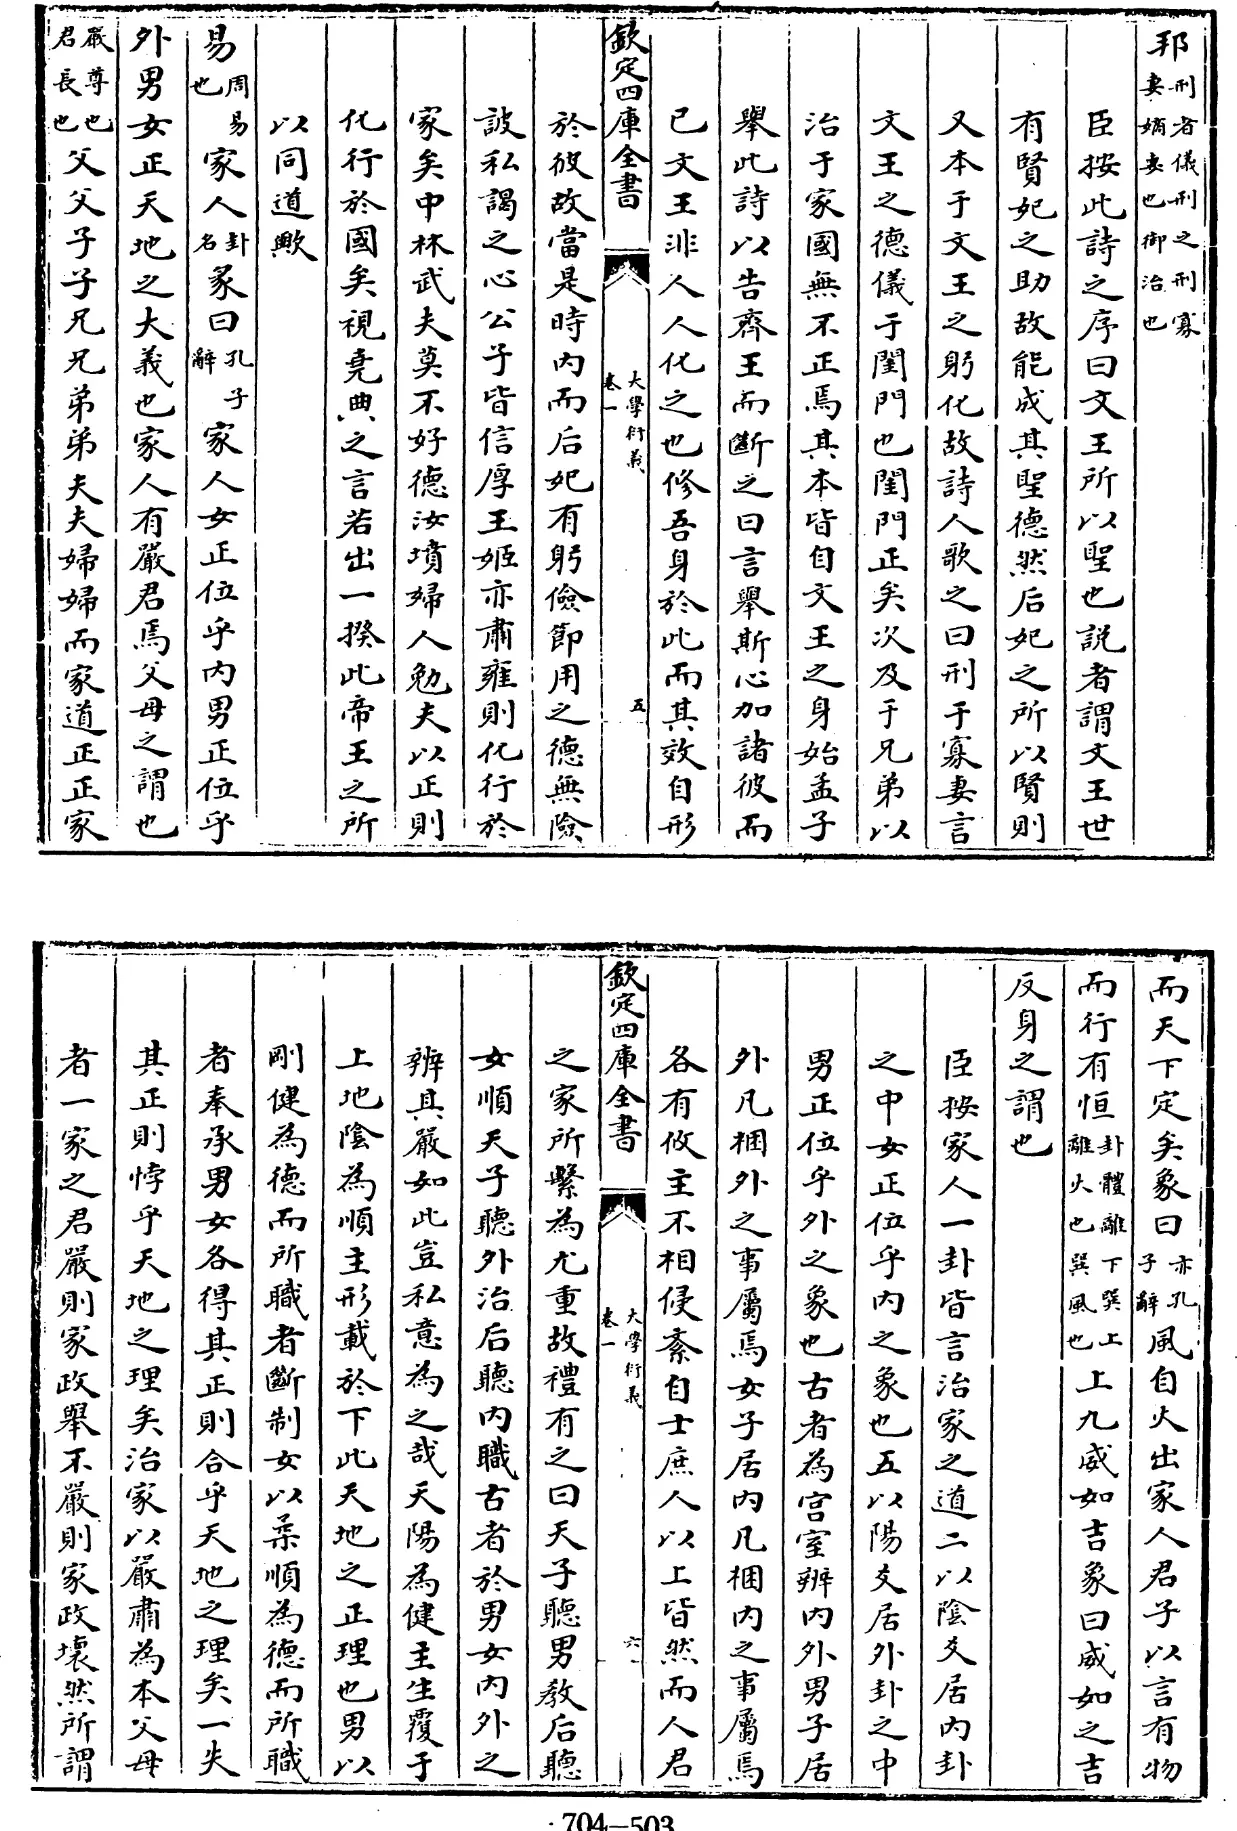 邦刑者儀刑之刑寡妻嫡妻也御治也
臣按此詩之序曰文王所以聖也説者謂文王世
有賢妃之助故能成其聖德然后妃之所以賢則
又本于文王之躬化故詩人歌之曰刑于寡妻言
文王之德儀于閨門也閨門正矣次及于兄弟以
治于家國無不正焉其本皆自文王之身始孟子
舉此詩以告齊王而斷之曰言舉斯心加諸彼而
已文王非人人化之也修吾身於此而其效自形
欽定四庫全書
大學衍義
卷一
五
於彼故當是時内而后妃有躬儉節用之德無險
詖私謁之心公子皆信厚王姬亦肅雍則化行於
家矣中林武夫莫不好德汝墳婦人勉夫以正則
化行於國矣視堯典之言若出一揆此帝王之所
以同道歟
易周易也家人卦名彖曰孔子辭家人女正位乎内男正位乎
外男女正天地之大義也家人有嚴君焉父母之謂也
嚴尊也君長也父父子子兄兄弟弟夫夫婦婦而家道正正家
而天下定矣象曰亦孔子辭風自火出家人君子以言有物
而行有恒卦體離下巽上離火也巽風也上九威如吉象曰威如之吉
反身之謂也
臣按家人一卦皆言治家之道二以陰爻居内卦
之中女正位乎内之象也五以陽爻居外卦之中
男正位乎外之象也古者為宫室辨内外男子居
外凡梱外之事屬焉女子居内凡梱内之事屬焉
各有攸主不相侵紊自士庶人以上皆然而人君
欽定四庫全書
大學衍義
卷一
六
之家所繫為尤重故禮有之曰天子聽男教后聽
女順天子聽外治后聽内職古者於男女内外之
辨其嚴如此豈私意為之哉天陽為健主生覆于
上地陰為順主形載於下此天地之正理也男以
剛健為德而所職者斷制女以柔順為德而所職
者奉承男女各得其正則合乎天地之理矣一失
其正則悖乎天地之理矣治家以嚴肅為本父母
者一家之君嚴則家政舉不嚴則家政壞然所謂
704-503